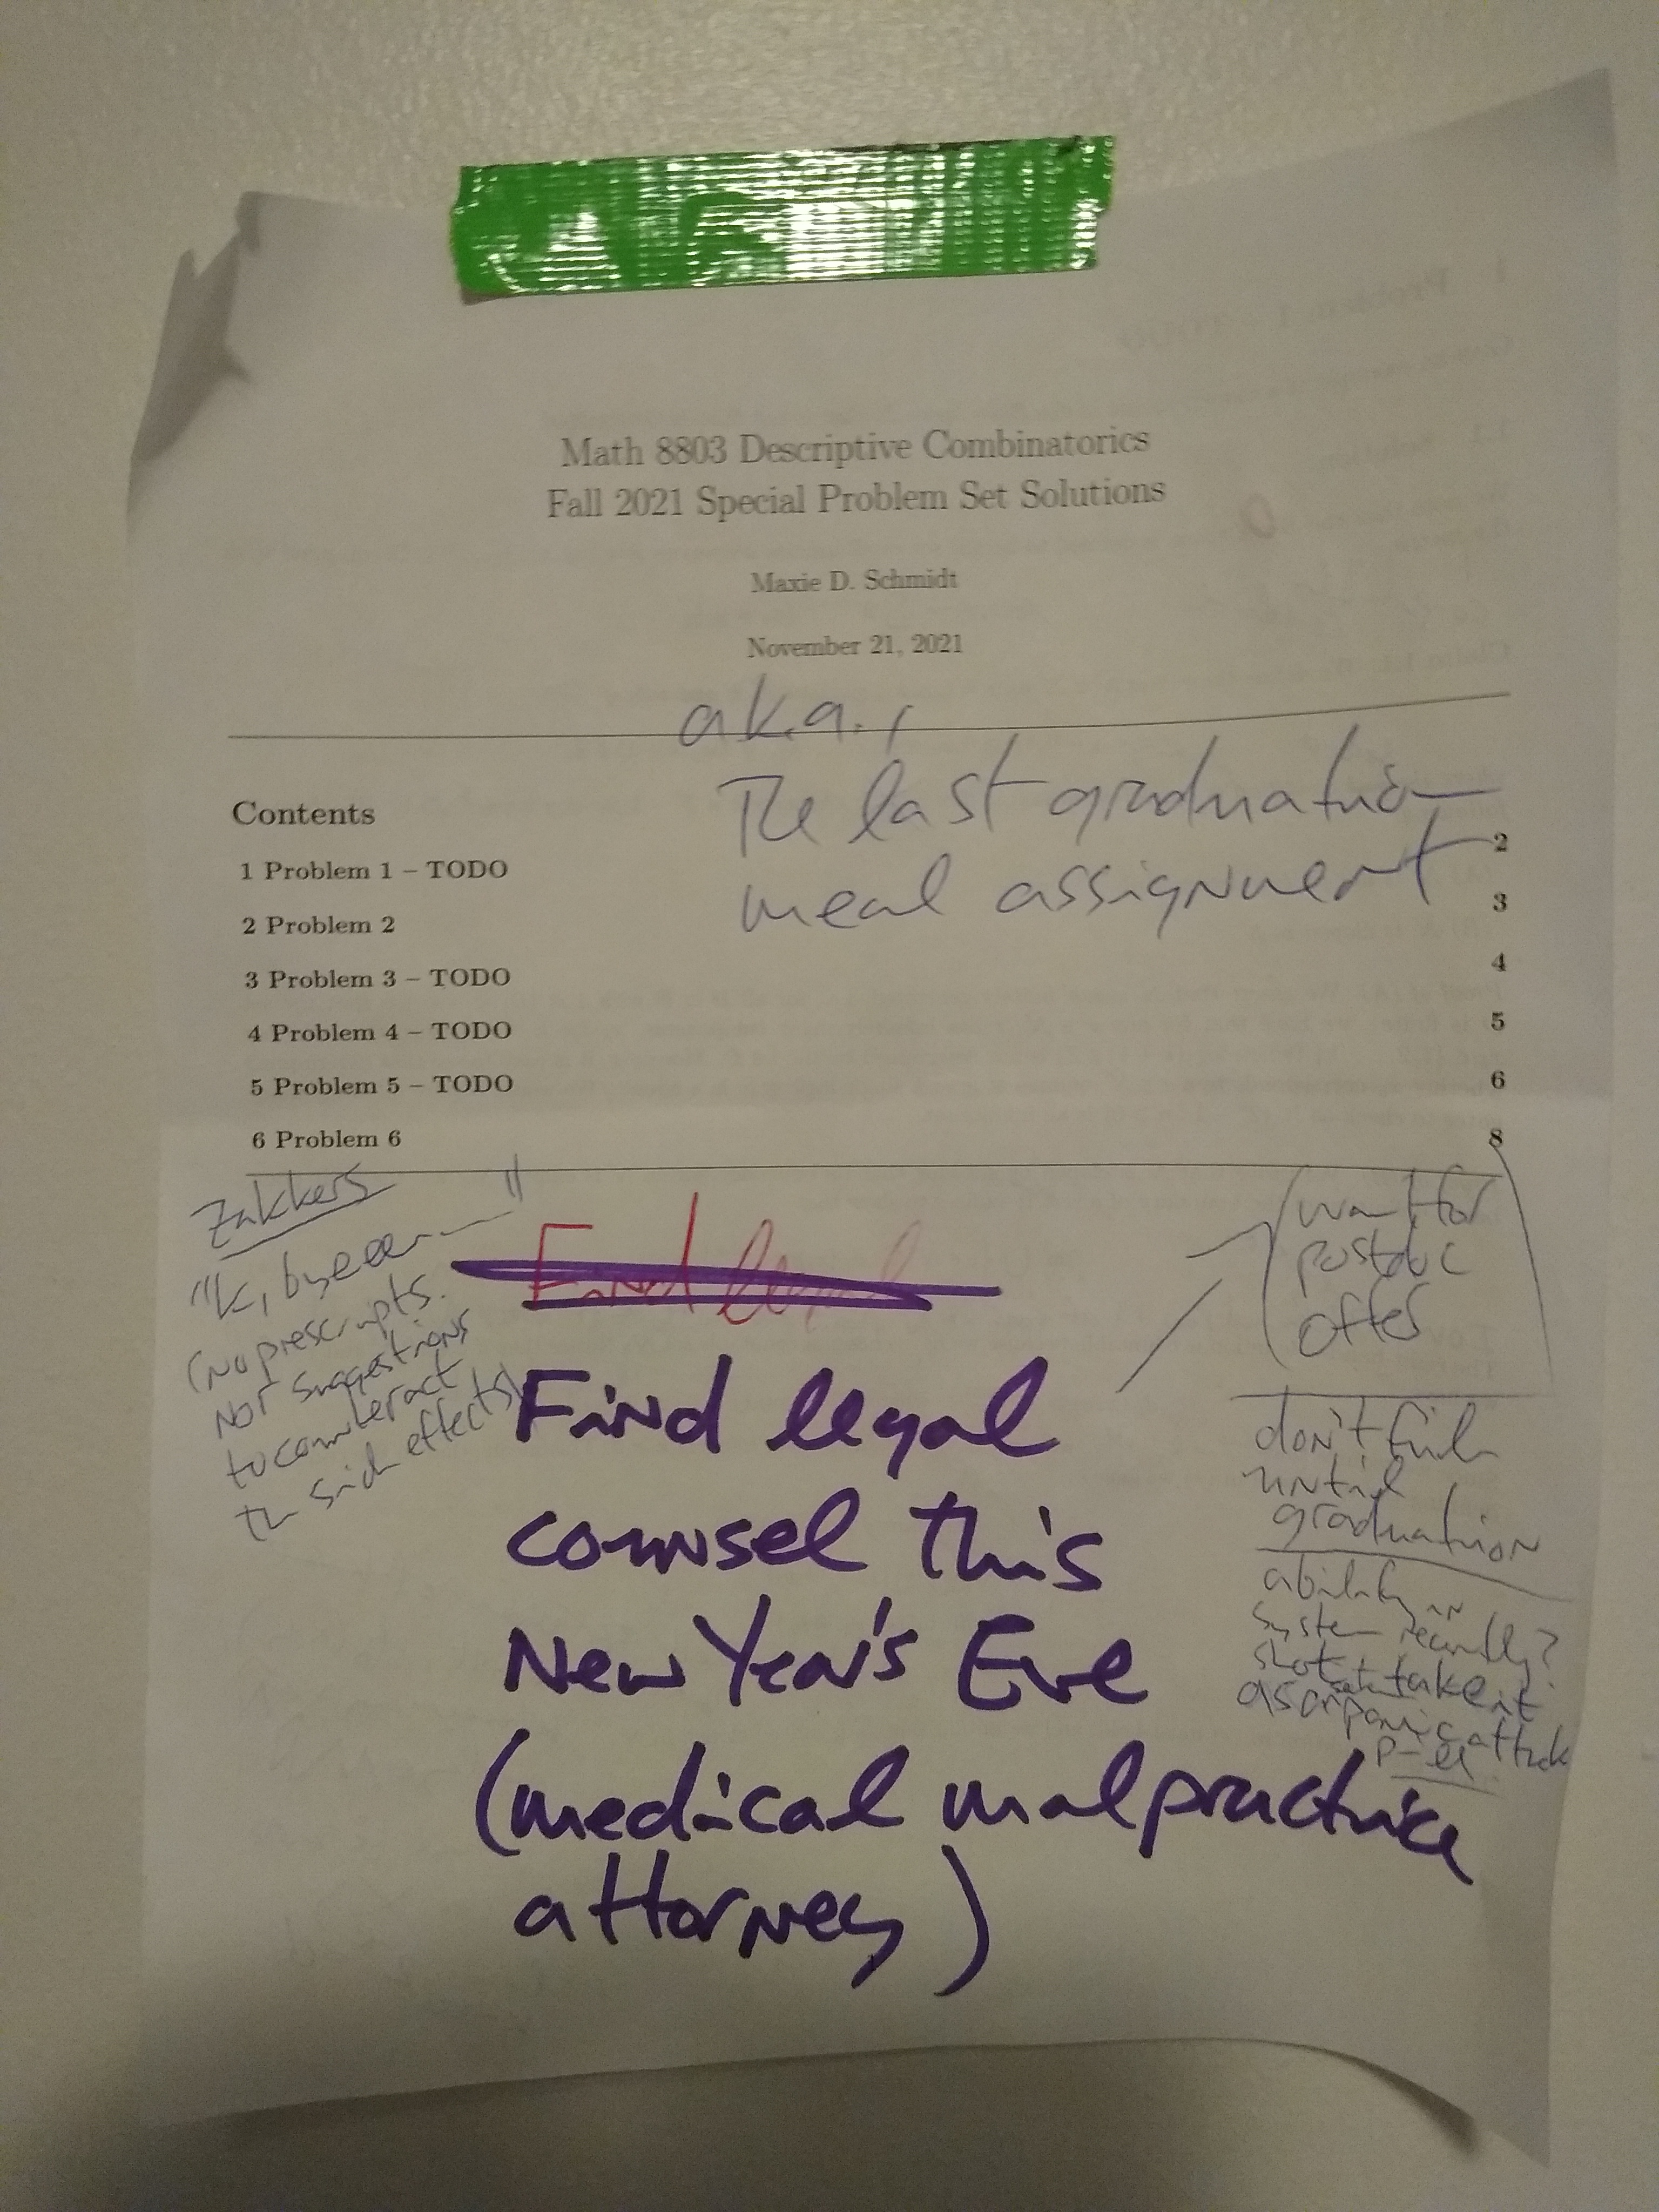 Math 8803 Descriptive Combinatorics
Fall 2021 Special Problem Set Solutions
Maxie D. Schmidt
November 21, 2021
a.k.a.,
The last graduation
meal assignment
Contents
1 Problem 1 – TODO 2
2 Problem 2 3
3 Problem 3 – TODO 4
4 Problem 4 – TODO 5
5 Problem 5 – TODO 6
6 Problem 6 8
Zakkers
"K, byeee"
(no prescripts.
nor suggestions
to counteract
the side effects)
Find legal
Find legal
counsel this
New Year's Eve
(medical malpractice
attorney)
(wait for
postdoc
offer
don't
until
graduation
ability in
system
take it
as panic attack